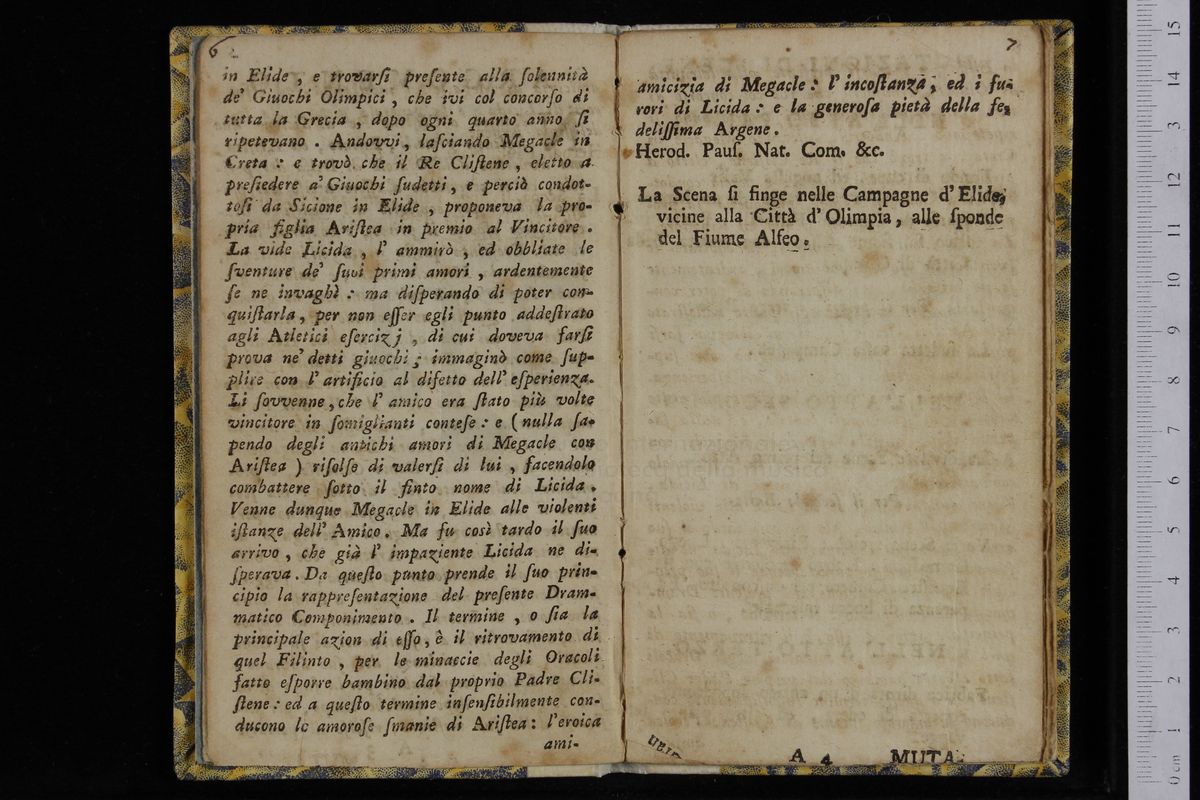 6
in Elide , e trovarſi preſente alla ſolennità
de' Giuochi Olimpici , che ivi col concorſo di
tutta la Grecia , dopo ogni quarto anno ſi
ripetevano . Andovvi , laſciando Megacle in
Creta : e trovò che il Re Cliſtene , eletto a
preſiedere a' Giuochi ſudetti , e perciò condot-
toſi da Sicione in Elide , proponeva la pro-
pria figlia Ariſtea in premio al Vincitore .
La vide Licida , l' ammirò , ed obbliate le
ſventure de' ſuoi primi amori , ardentemente
ſe ne invaghì : ma diſperando di poter con-
quiſtarla , per non eſſer egli punto addeſtrato
agli Atletici eſercizj , di cui doveva farſi
prova ne' detti giuochi ; immaginò come ſup-
plire con l' artificio al difetto dell' eſperienza.
Li ſovvenne , che l' amico era ſtato più volte
vincitore in ſomiglianti conteſe : e ( nulla ſa-
pendo degli antichi amori di Megacle con
Ariſtea ) riſolſe di valerſi di lui , facendolo
combattere ſotto il finto nome di Licida .
Venne dunque Megacle in Elide alle violenti
iſtanze dell' Amico . Ma fu così tardo il ſuo
arrivo , che già l' impaziente Licida ne di-
ſperava . Da queſto punto prende il ſuo prin-
cipio la rappreſentazione del preſente Dram-
matico Componimento . Il termine , o ſia la
principale azion di eſſo , è il ritrovamento di
quel Filinto , per le minaccie degli Oracoli
fatto eſporre bambino dal proprio Padre Cli-
ſtene : ed a queſto termine inſenſibilmente con-
ducono le amoroſe ſmanie di Ariſtea : l'eroica
ami-
7
amicizia di Megacle : l' incoſtanza , ed i fu-
rori di Licida : e la generoſa pietà della fe-
deliſſima Argene .
Herod. Pauſ. Nat. Com. &c.
La Scena ſi finge nelle Campagne d' Elide,
vicine alla Città d' Olimpia , alle ſponde
del Fiume Alfeo .
A 4 MUTA-
0 cm 1 2 3 4 5 6 7 8 9 10 11 12 13 14 15